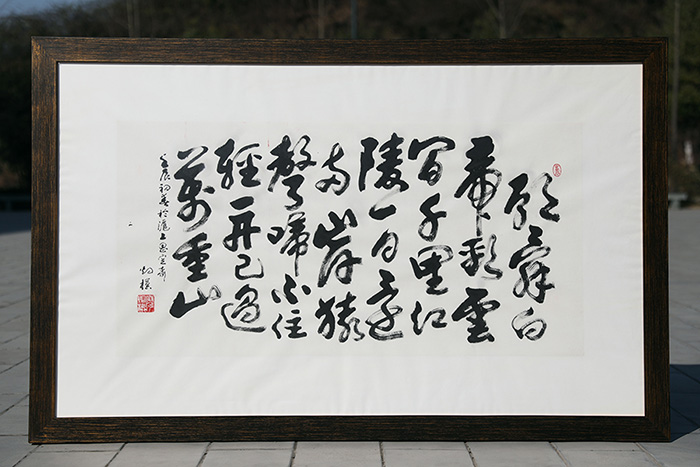 朝辭白
帝彩雲
間千里江
陵一日還
兩岸猿
聲啼不住
輕舟已過
萬重山
壬辰初春於滬上